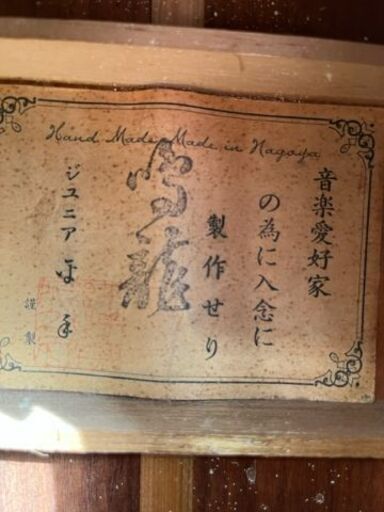 Hand Made, Made in Nagoya
音楽愛好家
の為に入念に
製作せり
ジュニア
謹製